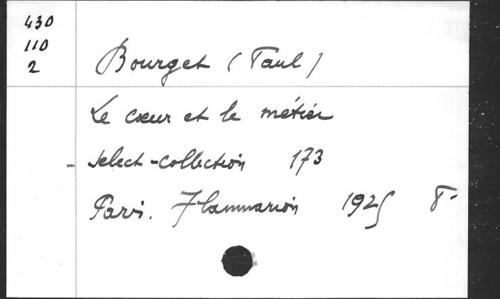 430
110
2
Bourget (Paul)
Le cœur et le métier
Select-collection 173
Paris. Flammarion 1925 8°